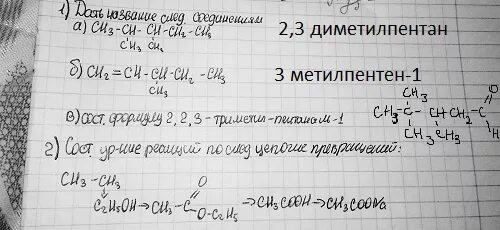 1) Дать название след. соединениям
а) CH₃-CH-CH-CH₂-CH₃
CH₃ CH₃
2,3 диметилпентан
б) CH₂=CH-CH-CH₂-CH₃
CH₃
3 метилпентен-1
в) Сост. формулу 2,2,3-триметил-пентаналь-1
CH₃
CH₃-C-CHCH₂-C
O
H
CH₃ CH₃
2) Сост. ур-ние реакций по след. цепочке превращений:
CH₃-CH₃
↓
C₂H₅OH→CH₃-C
O
O-C₂H₅
→CH₃COOH→CH₃COONa